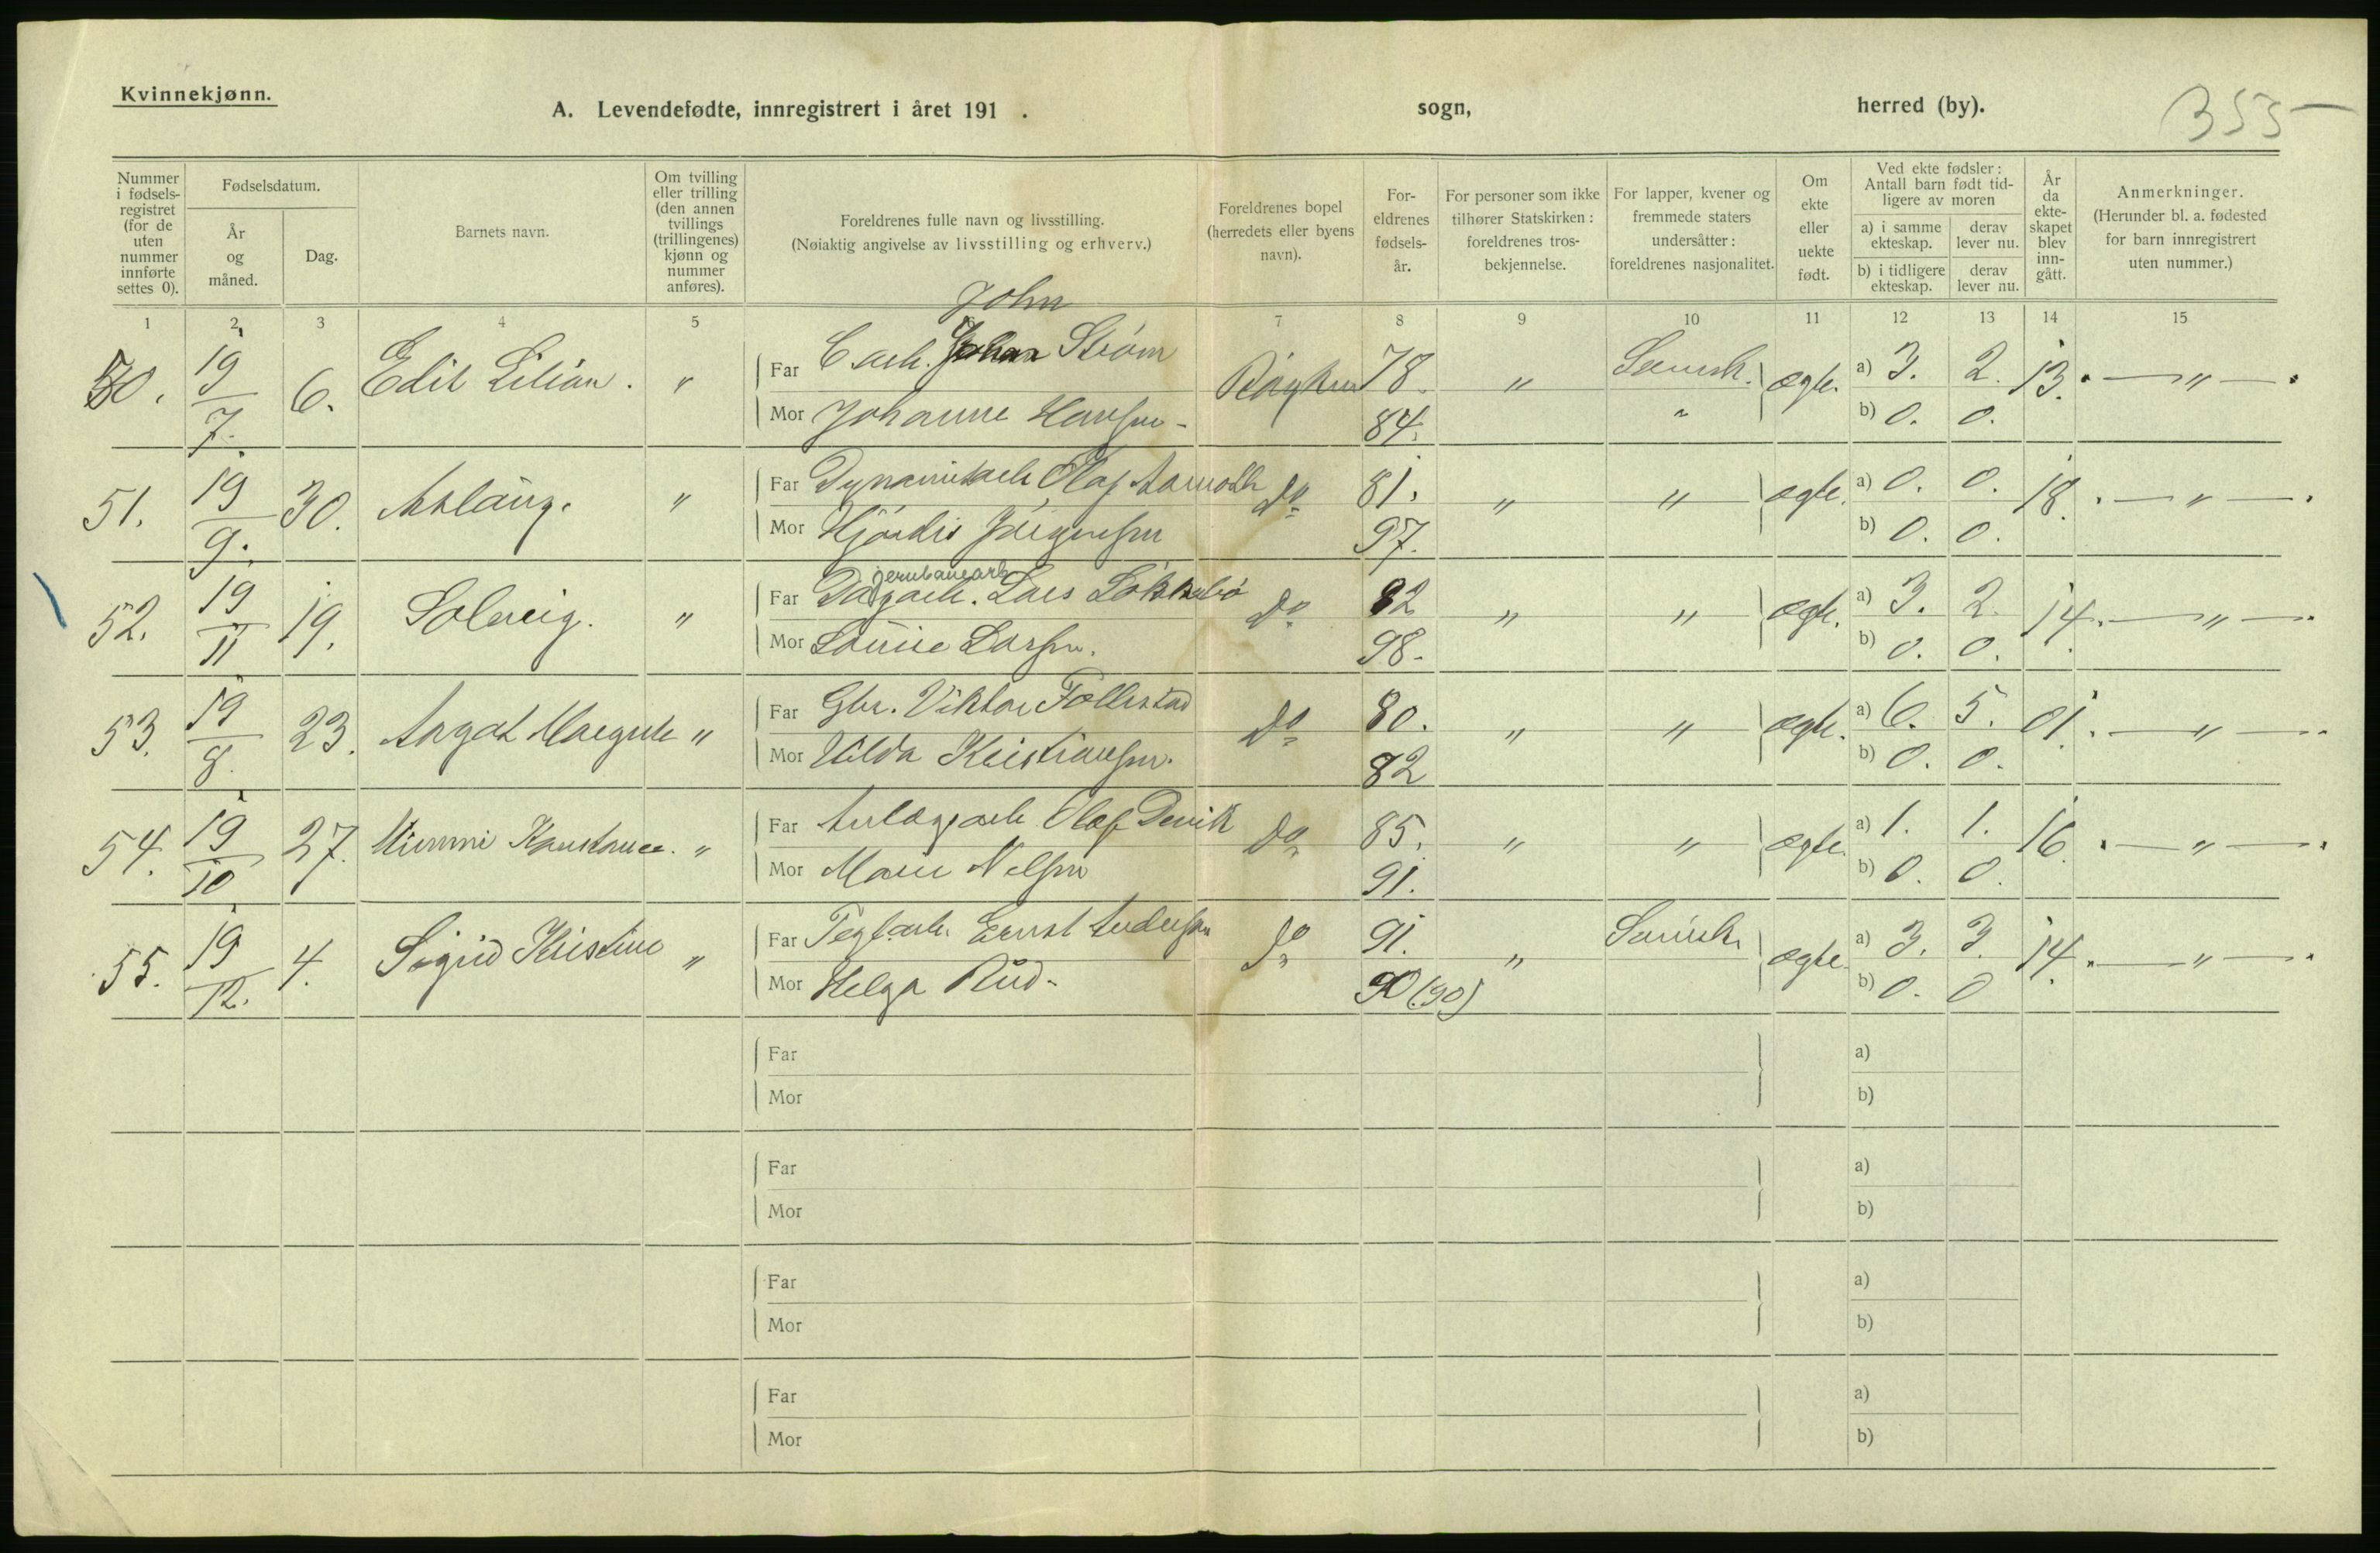 Kvinnekjønn.
A. Levendefødte, innregistrert i året 191 . sogn, herred (by).
355
Nummer i fødselsregistret (for de uten nummer innførte settes 0).
Fødselsdatum.
År og måned.
Dag.
Barnets navn.
Om tvilling eller trilling (den annen tvillings (trillingenes) kjønn og nummer anføres).
Foreldrenes fulle navn og livsstilling.
(Nøiaktig angivelse av livsstilling og erhverv.)
Foreldrenes bopel (herredets eller byens navn).
Foreldrenes fødselsår.
For personer som ikke tilhører Statskirken: foreldrenes trosbekjennelse.
For lapper, kvener og fremmede staters undersåtter: foreldrenes nasjonalitet.
Om ekte eller uekte født.
Ved ekte fødsler: Antall barn født tidligere av moren
a) i samme ekteskap. derav lever nu.
b) i tidligere ekteskap. derav lever nu.
År da ekteskapet blev inngått.
Anmerkninger.
(Herunder bl. a. fødested for barn innregistrert uten nummer.)
1 2 3 4 5 6 7 8 9 10 11 12 13 14 15
John
50. 19/7. 6. Edit Lilian. " Far Strøm Røyken 78. " Svensk. ægte. a) 3. 2. 13. — " —
Mor Johanne Hansen - 84. " b) 0. 0.
51. 19/9. 30. Aslaug. " Far Olaf Do 81. " " ægte. a) 0. 0. 18. — " —
Mor Hjørdis Jørgensen 97. b) 0. 0.
jernbanearb
52. 19/11 19. Solveig. " Far Dagarb. Lars Do 82 " " ægte. a) 3. 2. 14. — " —
Mor Louise Larsen. 98. b) 0. 0.
53. 19/8. 23. Aagot Margrete " Far Gbr. Viktor Follestad Do 80. " " ægte. a) 6. 5. 01. — " —
Mor Hilda Kristiansen. 82 b) 0. 0.
54. 19/10 27. Mimmi Konstance. " Far Anlægsarb Olaf Do 85. " " ægte a) 1. 1. 16. — " —
Mor Marie Nilsen 91. b) 0. 0.
55. 19/12. 4. Sigrid Kristine " Far Teglarb. Ernst Andersen Do 91. " Svensk ægte a) 3. 3. 14. — " —
Mor Helga Rud - 90 (90) b) 0. 0
Far a)
Mor b)
Far a)
Mor b)
Far a)
Mor b)
Far a)
Mor b)